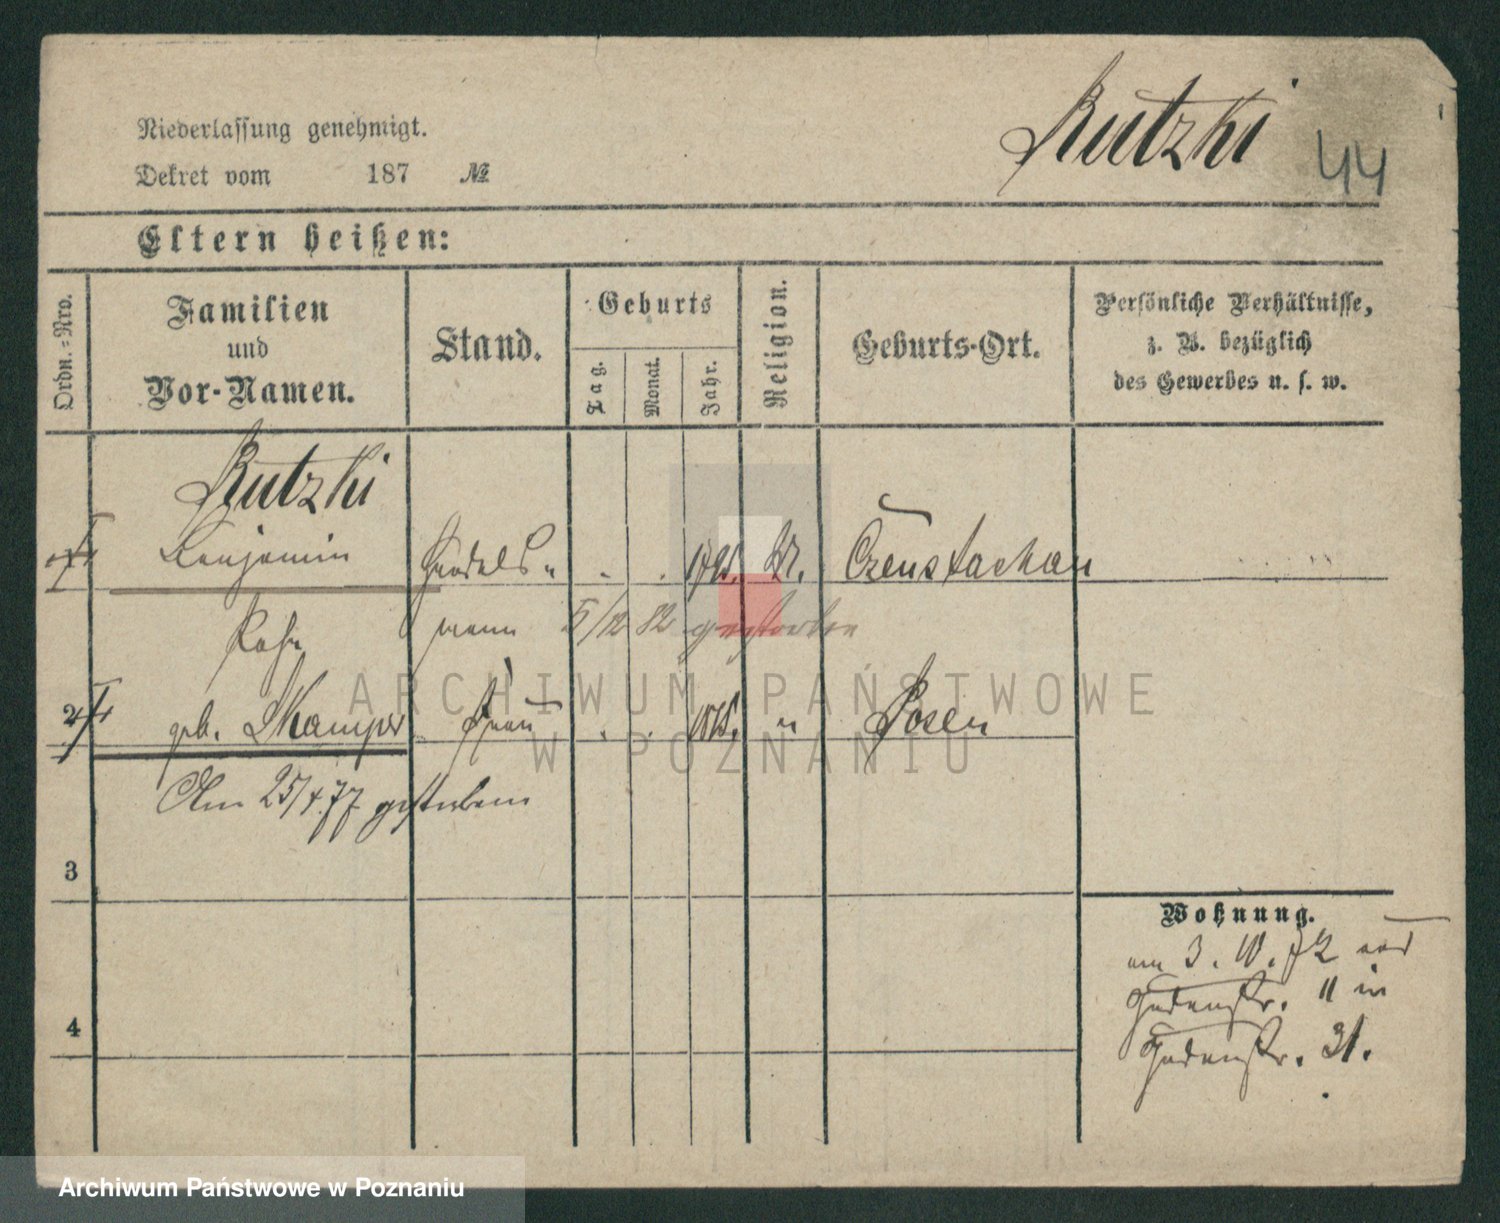 Niederlassung genehmigt.
Dekret vom 187 №
Rutzki
44
Eltern heißen:
Ordn.-Nro.
Familien
und
Vor-Namen.
Stand.
Geburts
Tag.
Monat.
Jahr.
Religion.
Geburts-Ort.
Persönliche Verhältnisse,
z. B. bezüglich
des Gewerbes u. s. w.
Rutzki
Benjamin Handels- 1795. Czenstachau
mann 5/12 82 gestorben
2 geb. Skamper Frau " Posen
Am 25/4.77 gestorben
3
4
Wohnung.
am 3. 10. 72 von
Judenstr. 11 in
Judenstr. 31.
ARCHIWUM PAŃSTWOWE
W POZNANIU
Archiwum Państwowe w Poznaniu